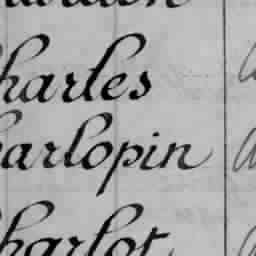 Charles
Charlopin
Charlot